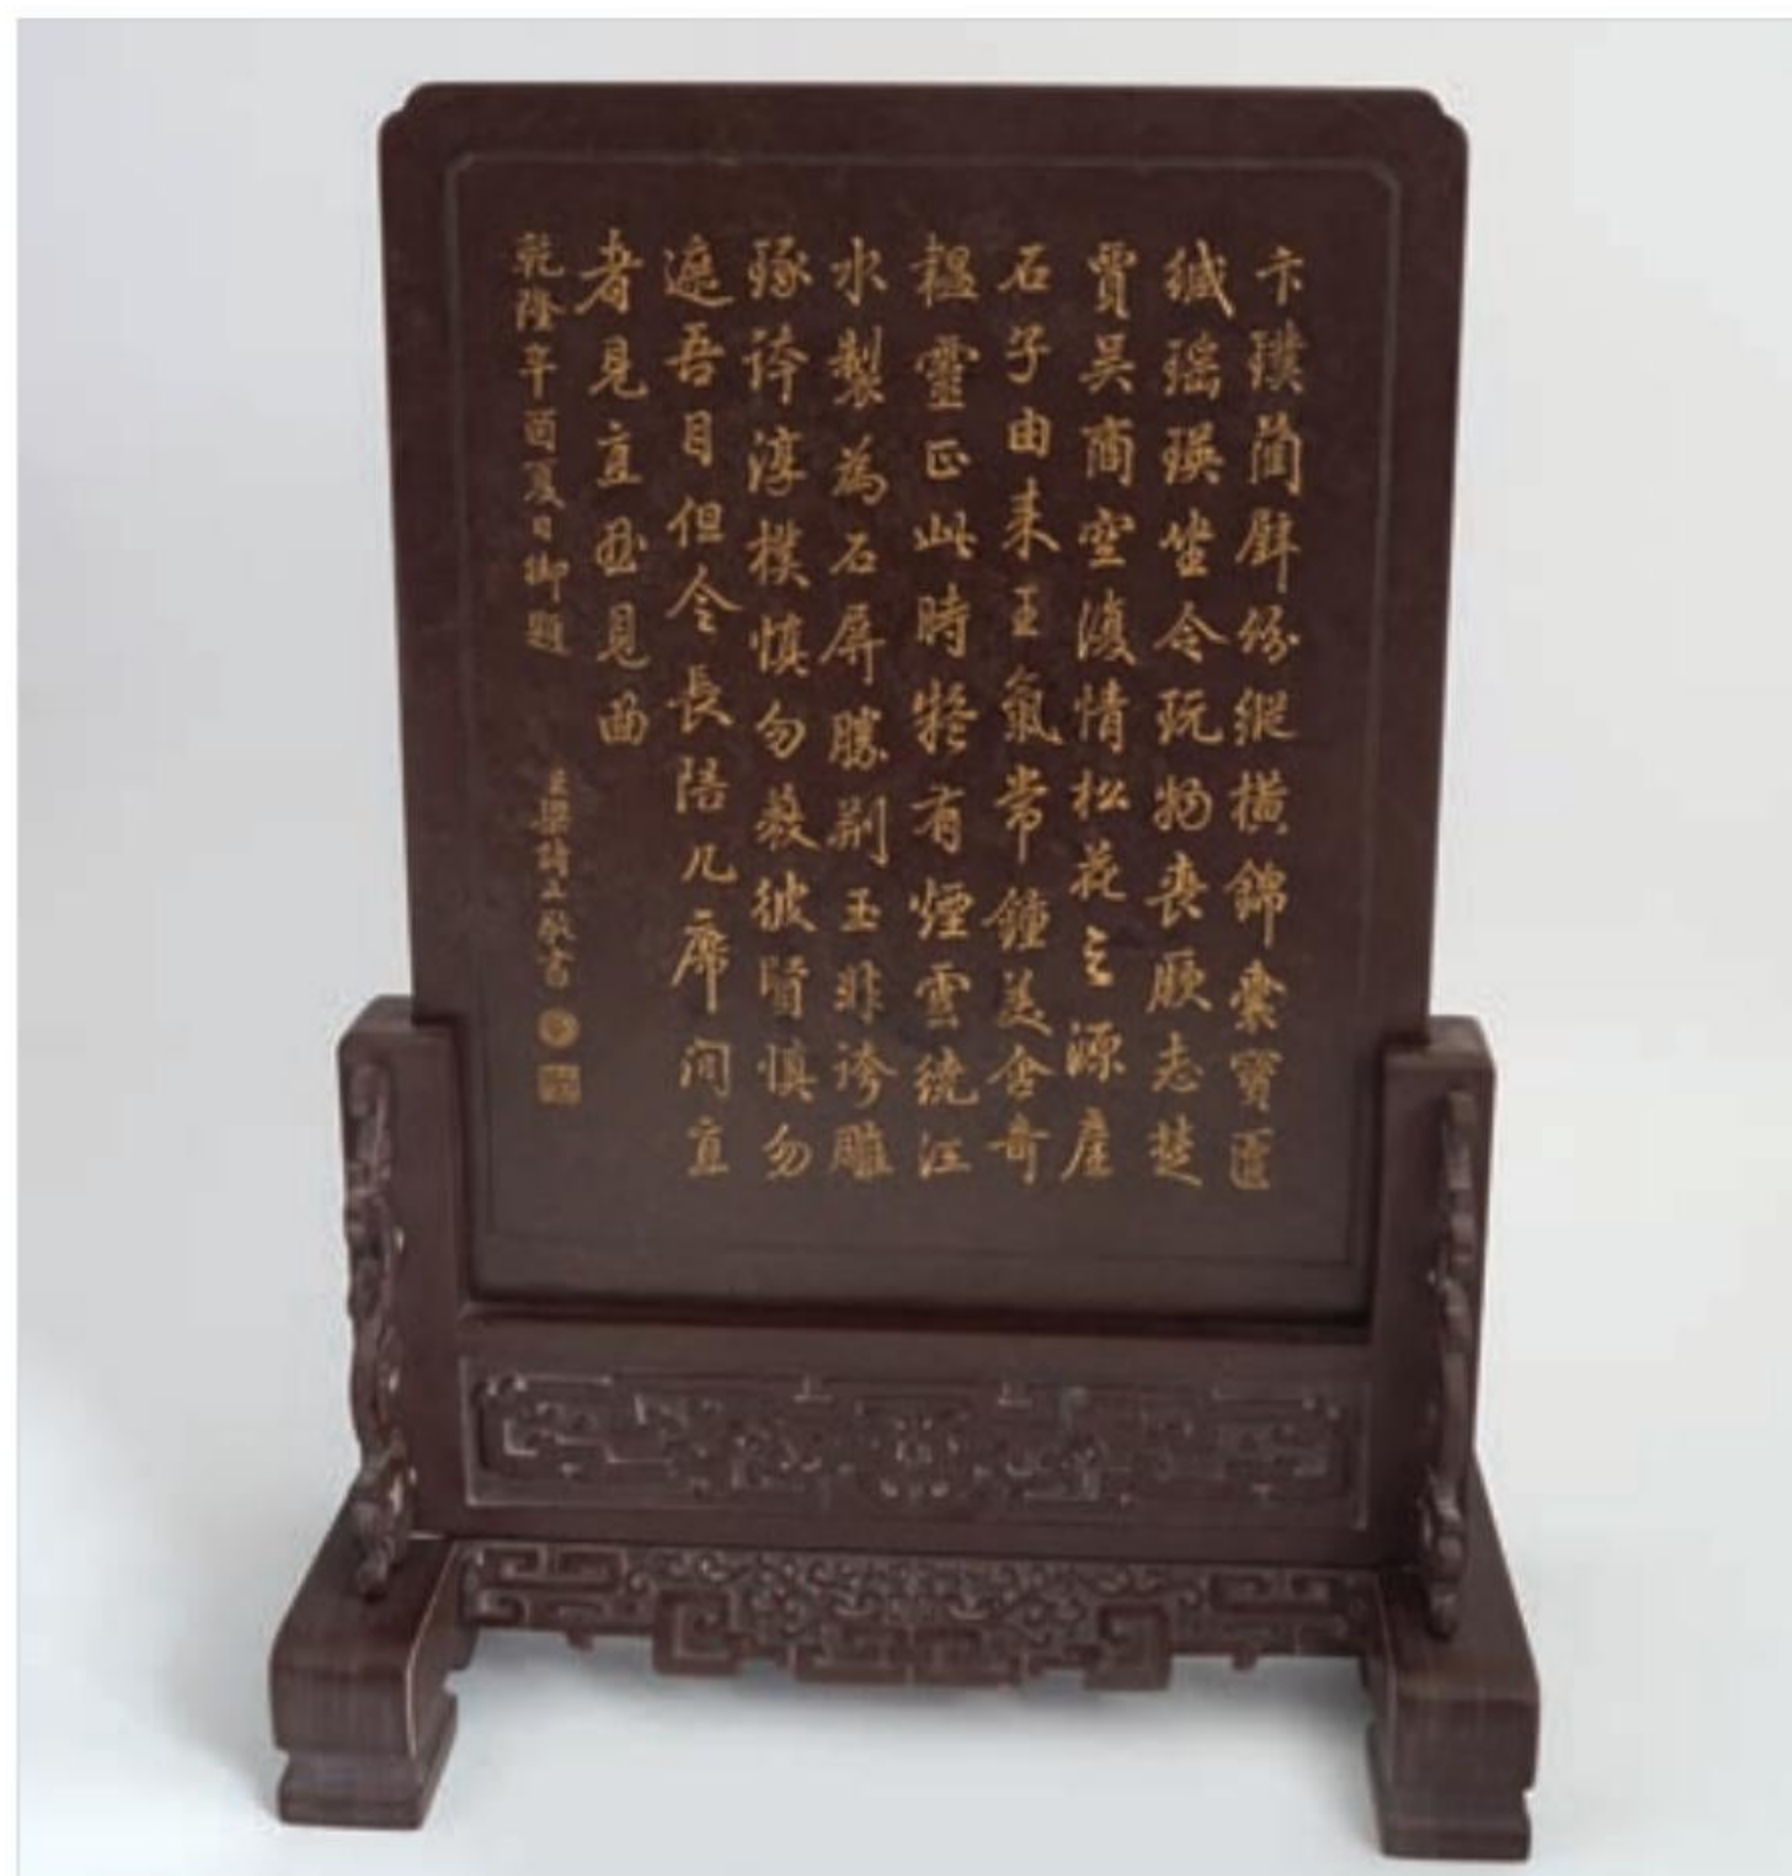 卞璞藺璧紛縱橫錦囊寶匣
緘瑤瑛坐令玩物喪厥志楚
賈吳商空復情松花之源產
石子由來王氣常鍾美含奇
韞靈正此時凝有煙雲繞江
水製為石屏勝荊玉非誇雕
琢誇淳樸慎勿蔽彼賢慎勿
遮吾目但令長陪几席間直
者見直曲見曲
乾隆辛酉夏日御題
臣梁詩正敬書